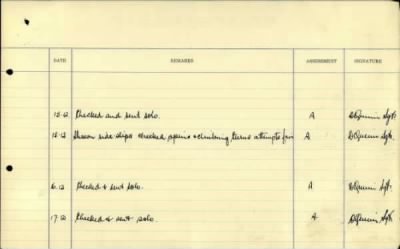 DATE REMARKS ASSESSMENT SIGNATURE
15-12 Checked and sent solo. A Sgt.
15-12 Shewn side-slips checked spins & climbing turns attempts fair A Sgt.
6-12 Checked & sent solo. A Sgt.
17-12 Checked & sent solo. A Sgt.